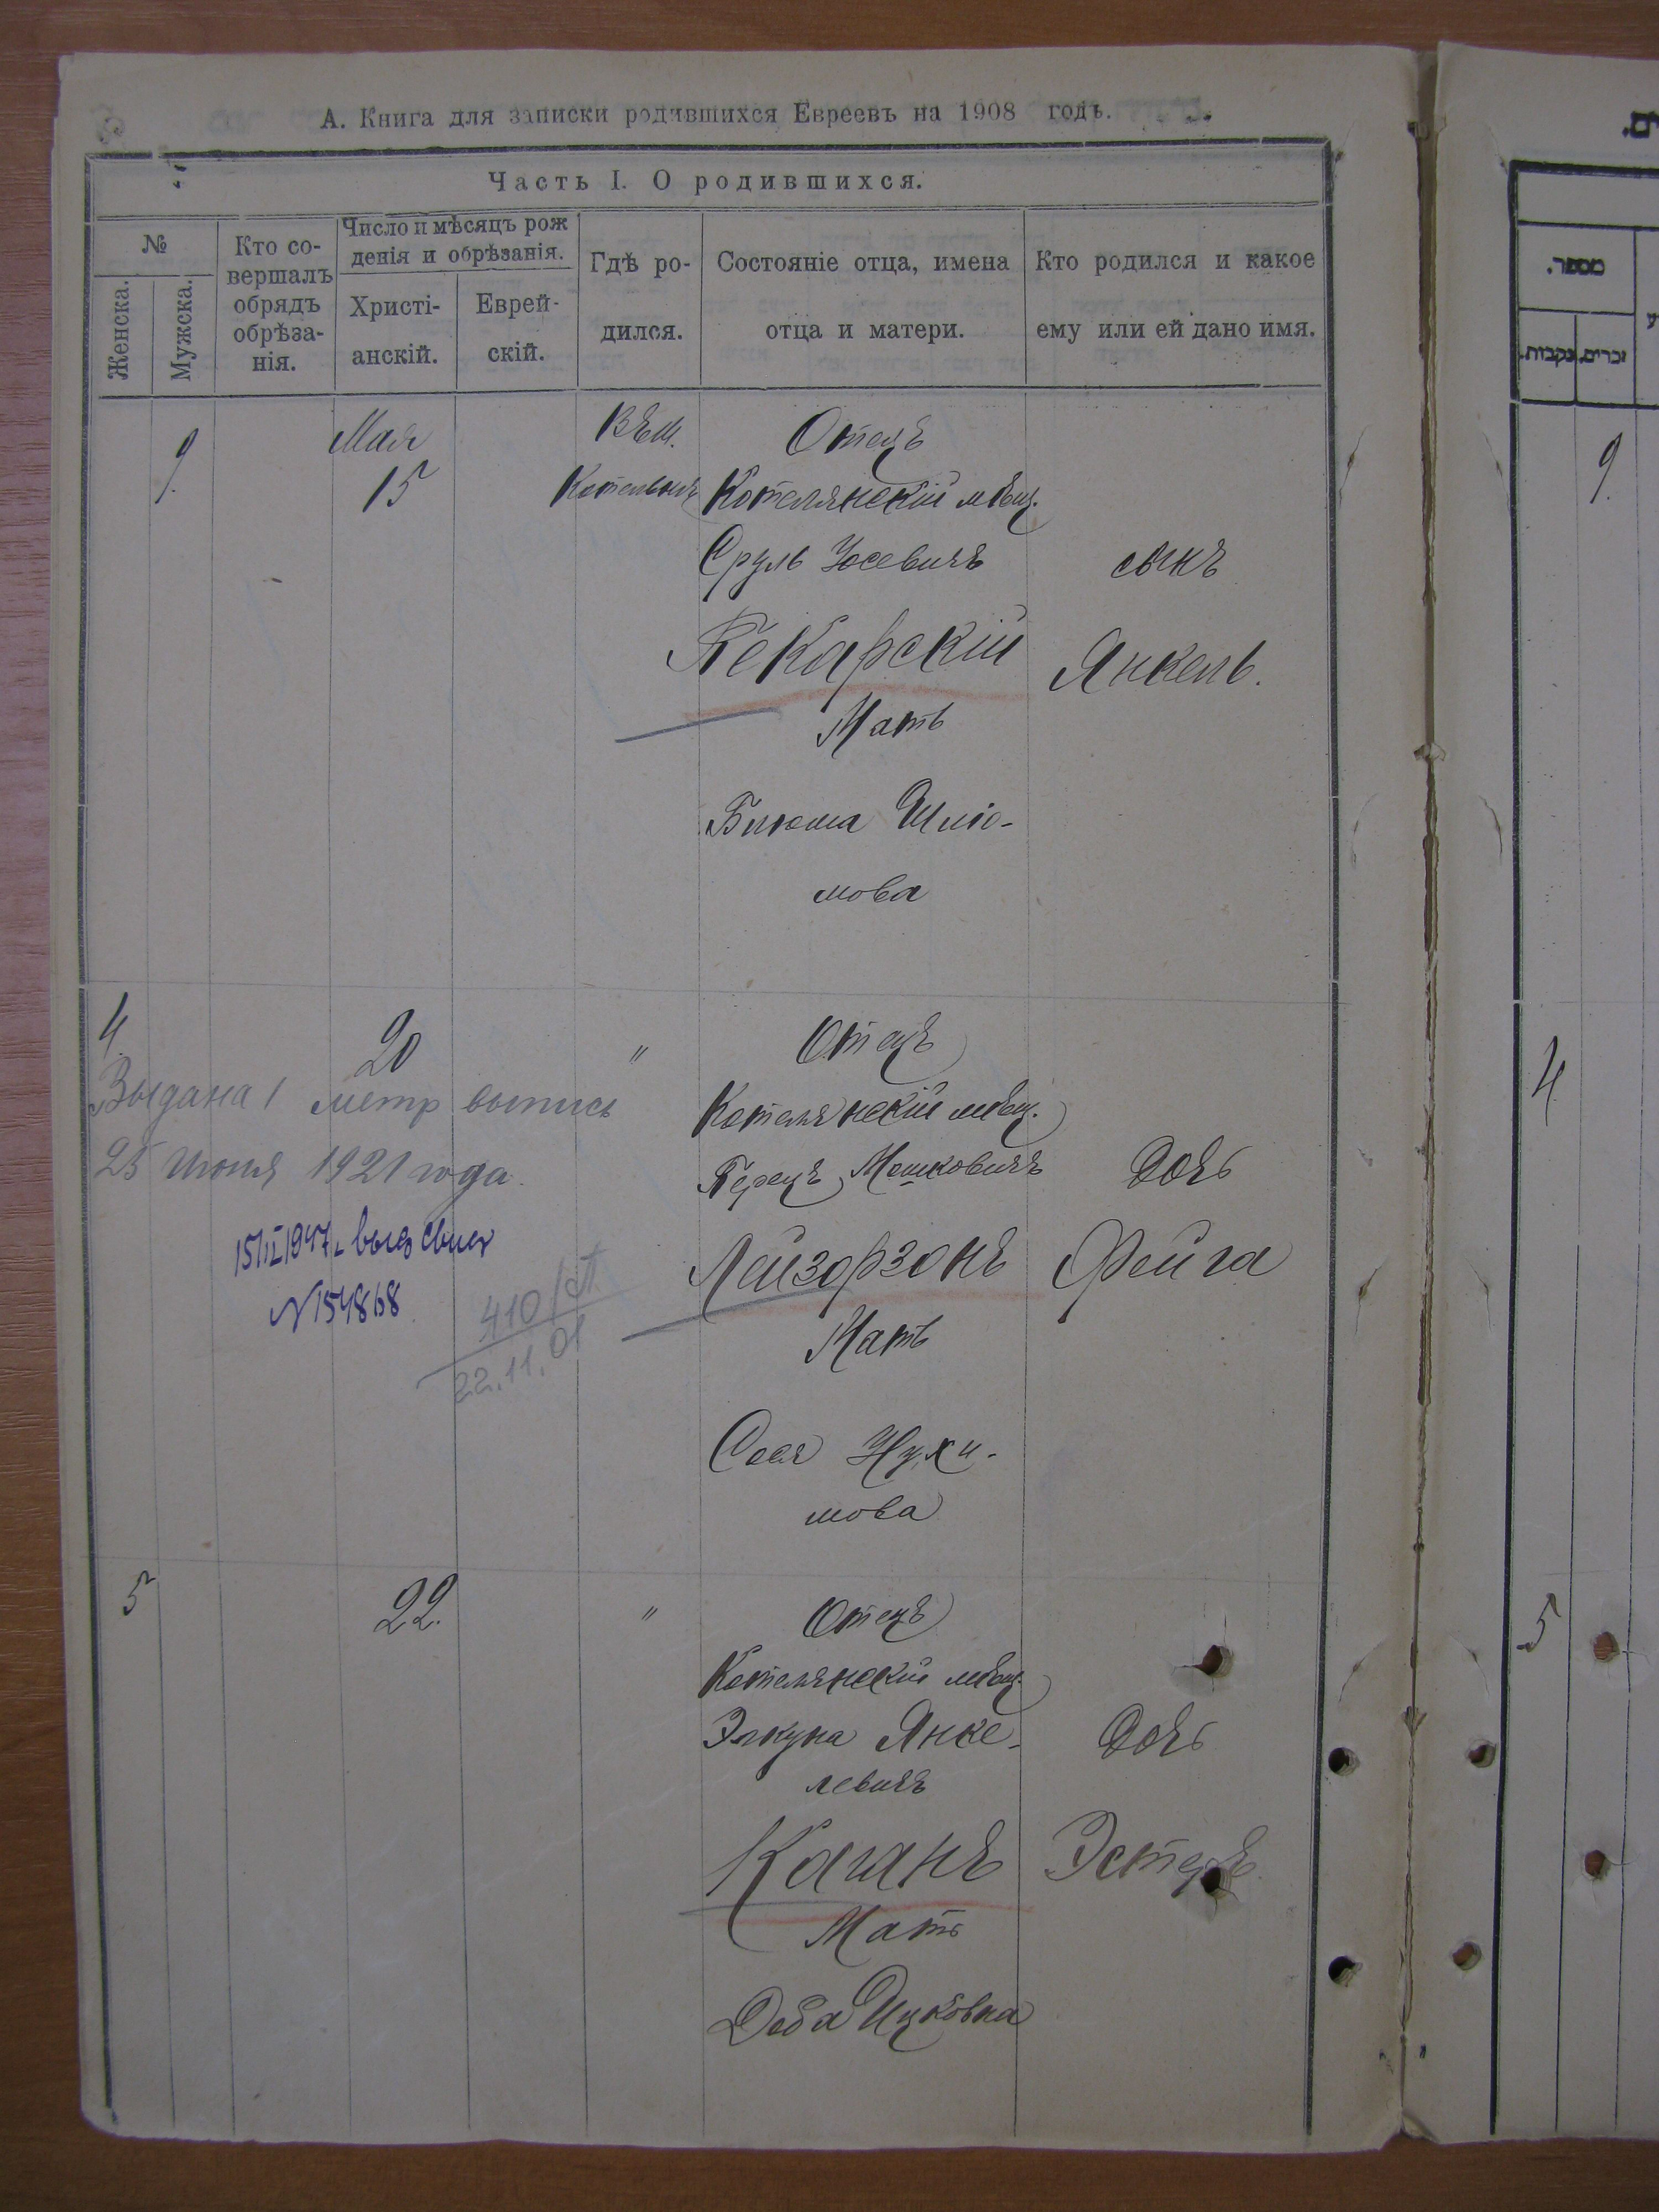 А. Книга для записки родившихся Евреевъ на 1908 годъ.
Часть I. О родившихся.
№
Женска.
Мужска.
Кто со-
вершалъ
обрядъ
обрѣза-
нія.
Число и мѣсяцъ рож
денія и обрѣзанія.
Христі-
анскій.
Еврей-
скій.
Гдѣ ро-
дился.
Состояніе отца, имена
отца и матери.
Кто родился и какое
ему или ей дано имя.
9.
Мая
15
Въ м.
Котельня
Отецъ
Котелянскій мѣщ.
Сруль Іосевичъ
Пекарскій
Мать
Блюма Шлio-
мова
сынъ
Янкель.
4.
20
"
Выдана 1 метр выпись
25 июня 1921 года.
выд свид
N 154868
410
22.11.01
Отецъ
Котелянскій мѣщ.
Перецъ Мошковичъ
Лейзорзонъ
Мать
Сося Нухи-
мова
Дочь
Фейга
5
22.
"
Отецъ
Котелянскій мѣщ.
Элкуна Янке-
левичъ
Каганъ
Мать
Доба Ицковна
Дочь
Эстеръ
מספר.
זכרים.
נקבות.
9.
4
5